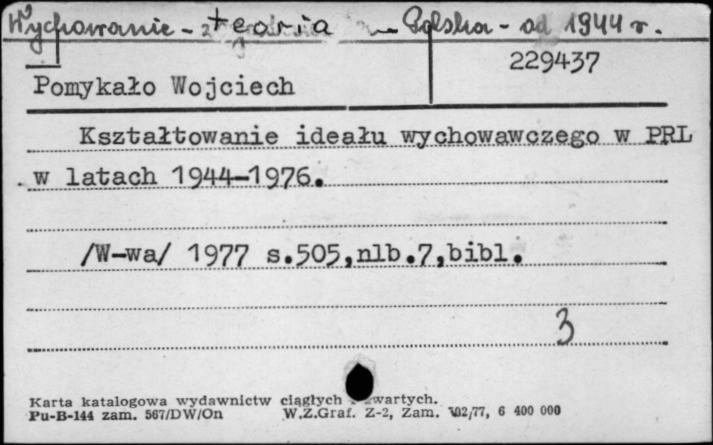 Wychowanie - teoria - Polska - od 1944 r.
229437
Pomykało Wojciech
Kształtowanie ideału wychowawczego w PRL
w latach 1944-1976.
/W-wa/ 1977 s.505,nlb.7,bibl.
3
Karta katalogowa wydawnictw ciągłych zwartych.
Pu-B-144 zam. 567/DW/On W.Z.Graf. Z-2, Zam. 102/77, 6 400 000